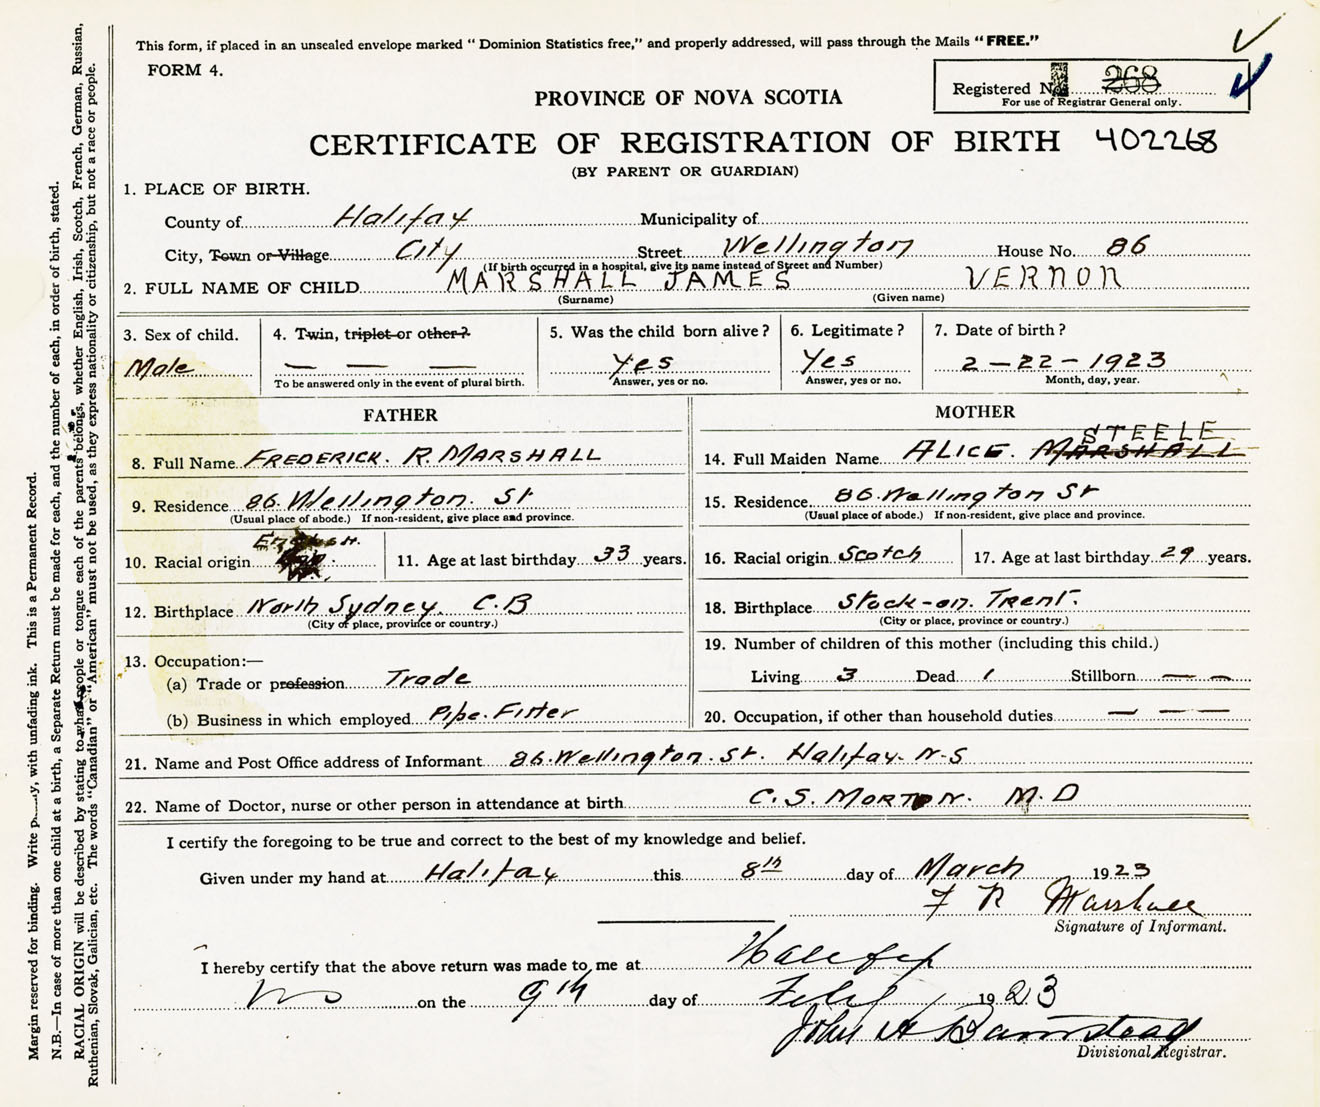 This form, if placed in an unsealed envelope marked “ Dominion Statistics free,” and properly addressed, will pass through the Mails “ FREE.”
FORM 4.
Registered No. 268
For use of Registrar General only.
PROVINCE OF NOVA SCOTIA
CERTIFICATE OF REGISTRATION OF BIRTH 402268
(BY PARENT OR GUARDIAN)
1. PLACE OF BIRTH.
County of Halifax Municipality of
City, Town or Village City Street Wellington House No. 86
(If birth occurred in a hospital, give its name instead of Street and Number)
2. FULL NAME OF CHILD MARSHALL JAMES VERNON
(Surname) (Given name)
3. Sex of child. 4. Twin, triplet or other? 5. Was the child born alive? 6. Legitimate? 7. Date of birth?
Male — — — Yes Yes 2-22-1923
To be answered only in the event of plural birth. Answer, yes or no. Answer, yes or no. Month, day, year.
FATHER
8. Full Name FREDERICK. R. MARSHALL
9. Residence 86. Wellington. St
(Usual place of abode.) If non-resident, give place and province.
English.
10. Racial origin 11. Age at last birthday 33 years.
12. Birthplace North Sydney. C.B
(City or place, province or country.)
13. Occupation:—
(a) Trade or profession Trade
(b) Business in which employed Pipe. Fitter
MOTHER
STEELE
14. Full Maiden Name ALICE. MARSHALL
15. Residence 86. Wellington St
(Usual place of abode.) If non-resident, give place and province.
16. Racial origin Scotch 17. Age at last birthday 29 years.
18. Birthplace Stock-on. Trent.
(City or place, province or country.)
19. Number of children of this mother (including this child.)
Living 3 Dead 1 Stillborn — —
20. Occupation, if other than household duties — — —
21. Name and Post Office address of Informant 86. Wellington. St. Halifax. N-S
22. Name of Doctor, nurse or other person in attendance at birth C. S. MORTON. M. D
I certify the foregoing to be true and correct to the best of my knowledge and belief.
Given under my hand at Halifax this 8th day of March 1923
F R Marshall
Signature of Informant.
I hereby certify that the above return was made to me at Halifax
N S on the 9th day of 1923
John A Barnstead
Divisional Registrar.
Margin reserved for binding. Write with unfading ink. This is a Permanent Record.
N.B.—In case of more than one child at a birth, a Separate Return must be made for each, and the number of each, in order of birth, stated.
RACIAL ORIGIN will be described by stating to what people or tongue each of the parents belongs, whether English, Irish, Scotch, French, German, Russian,
Ruthenian, Slovak, Galician, etc. The words “Canadian” or “American” must not be used, as they express nationality or citizenship, but not a race or people.